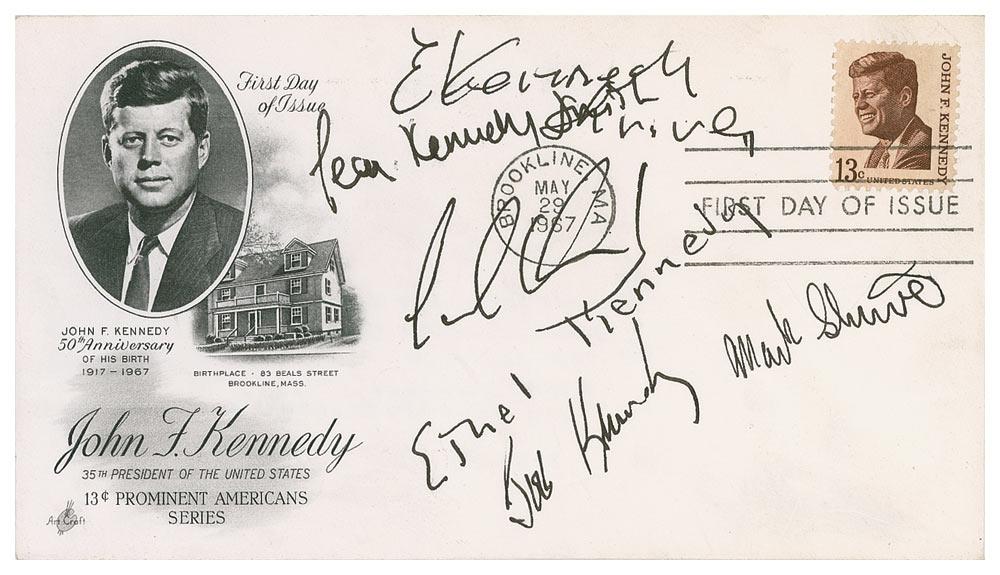 First Day
of Issue
E Kennedy Shriver
Jean Kennedy Smith
JOHN F. KENNEDY
13c
UNITED STATES
BROOKLINE, MA
MAY
29
1967
FIRST DAY OF ISSUE
Ethel Kennedy
Mark Shriver
Kennedy
JOHN F. KENNEDY
50th Anniversary
OF HIS BIRTH
1917 – 1967
BIRTHPLACE · 83 BEALS STREET
BROOKLINE, MASS.
John F. Kennedy
35TH PRESIDENT OF THE UNITED STATES
13¢ PROMINENT AMERICANS
SERIES
Art Craft